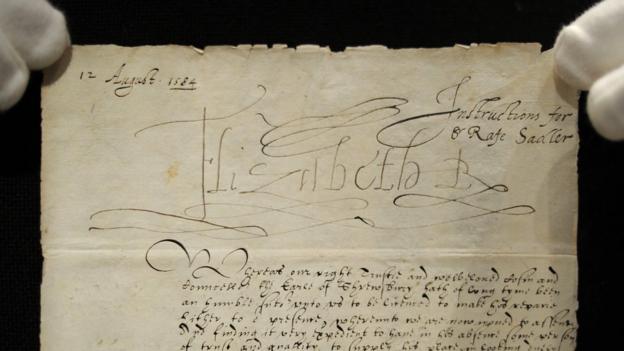 12 August 1584
Instructions for
Rafe Sadler
Elizabeth R
Whereas our right trustie and welbeloved Cosin and
Councellor Erle of Shrewsbury hath of long tyme been
an humble suto vnto vs to be licenced to make his repaire
hither to presence, wherevnto we are now moved to assent
And finding it very expedient to have in his absence some person
of trust and quallity to supply his place